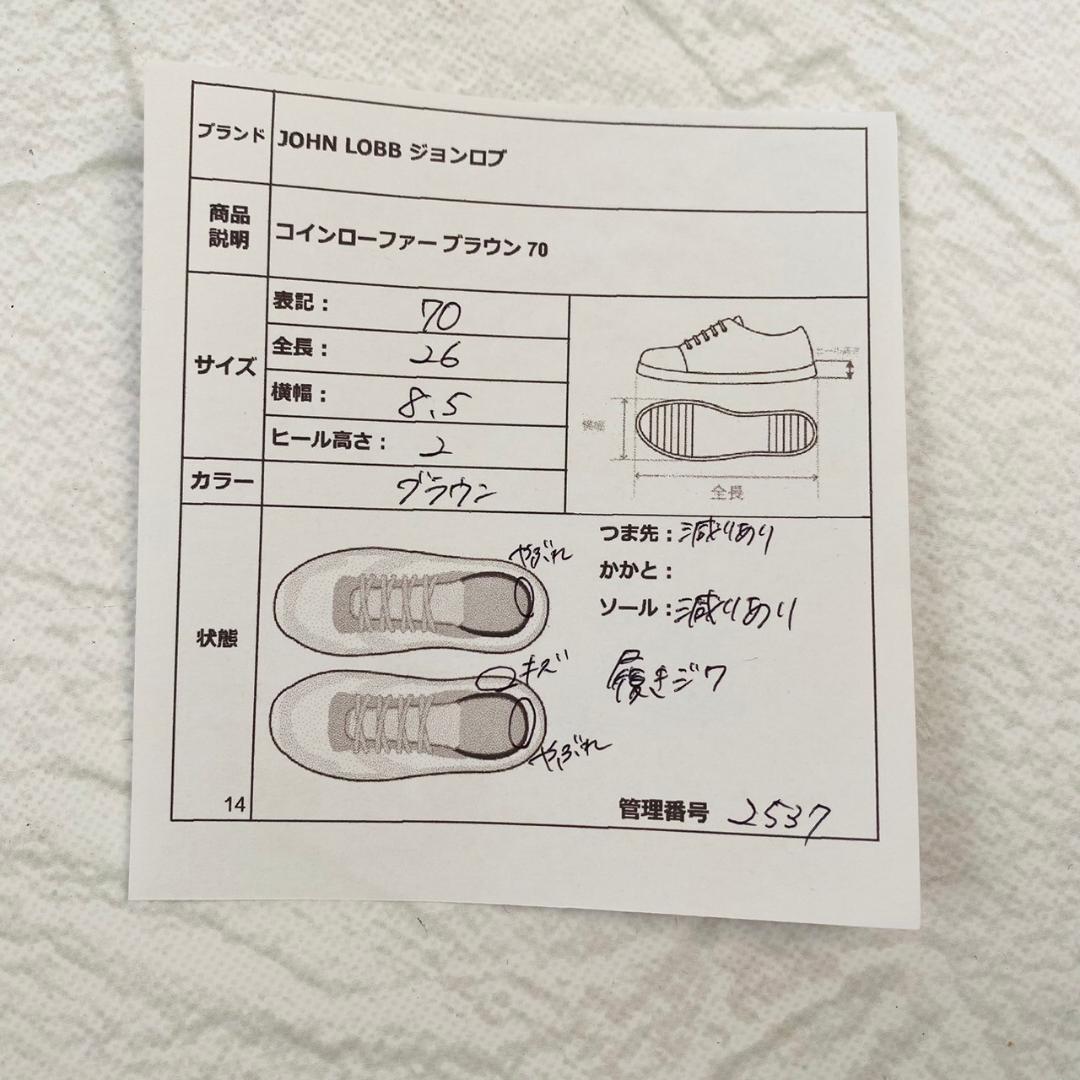 ブランド JOHN LOBB ジョンロブ
商品
説明
コインローファー ブラウン 70
サイズ
表記： 70
全長： 26
横幅： 8.5
ヒール高さ： 2
ヒール高さ
横幅
全長
カラー ブラウン
状態
やぶれ
キズ
やぶれ
つま先：減りあり
かかと：
ソール：減りあり
履きジワ
14
管理番号 2537